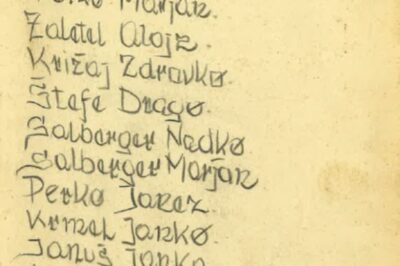 Marjan.
Zaletel Alojz.
Križaj Zdravko.
Štefe Drago.
Salberger Nedko
Salberger Marjan
Perko Janez
Krmel Janko.
Januš Janko